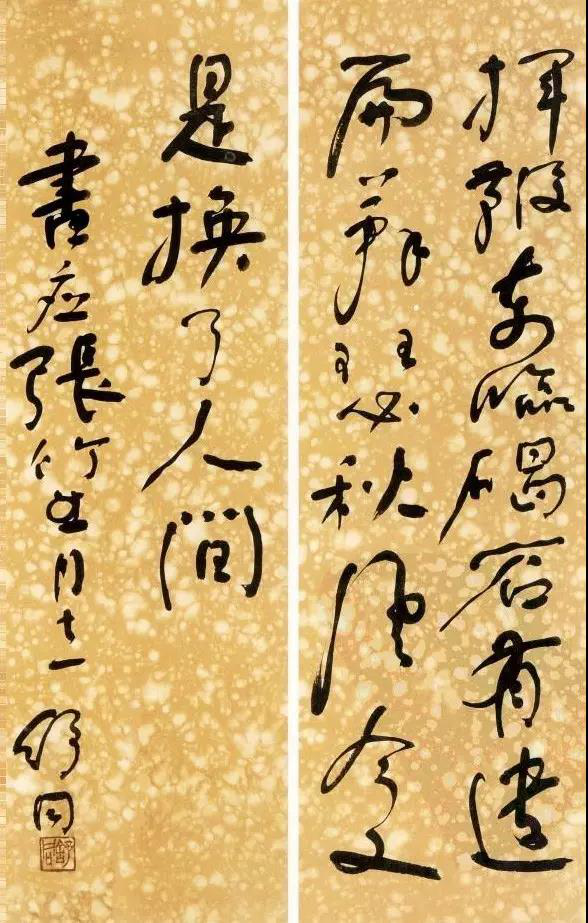 揮鞭東臨碣石有遺
篇蕭瑟秋風今又
是換了人間
書应張竹生同志
舒同
舒同